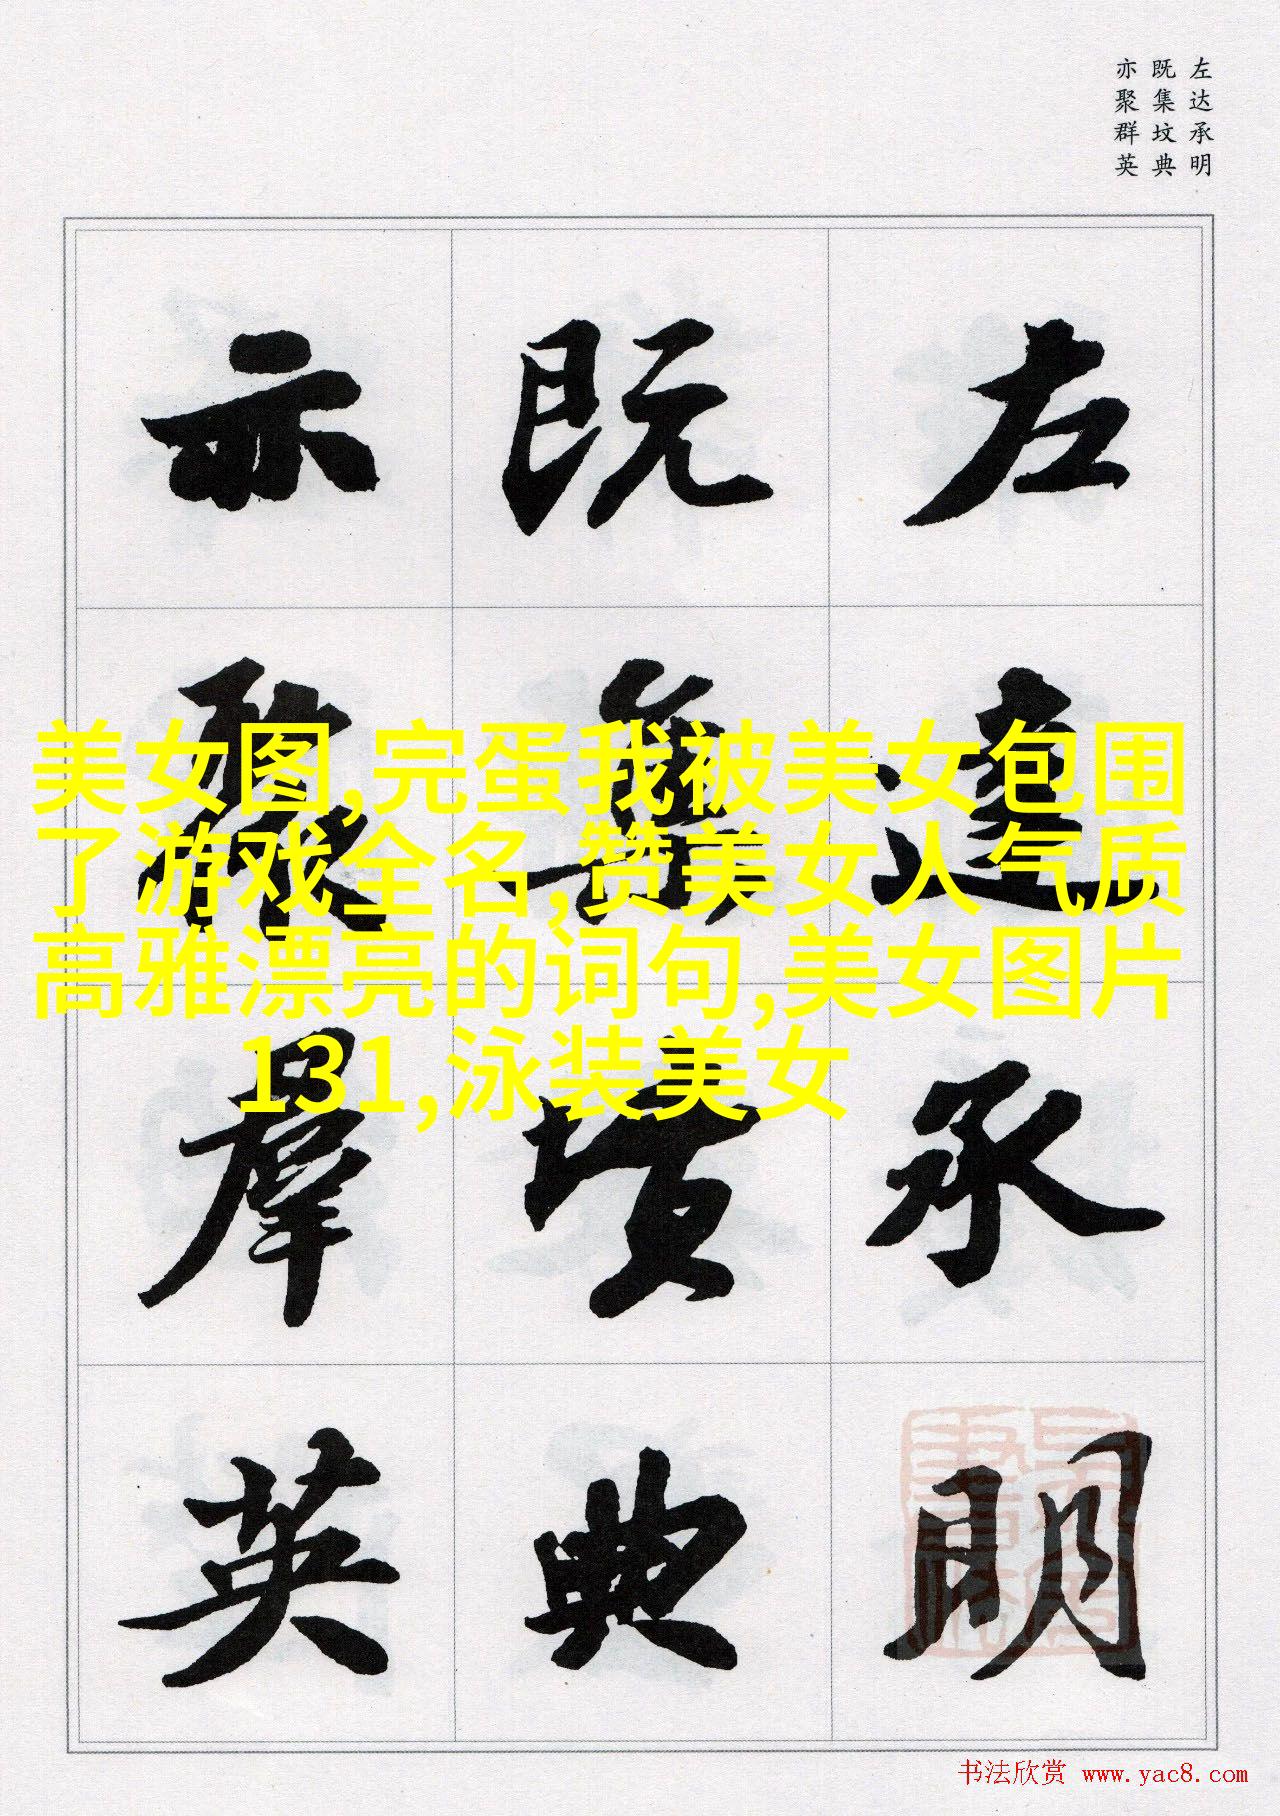 左达承明
既集坟典
亦聚群英
左達承明
既集墳典
亦聚羣英
美女图,完蛋我被美女包围
了游戏全名,赞美女人气质
高雅漂亮的词句,美女图片
131,泳装美女
书法欣赏 www.yac8.com